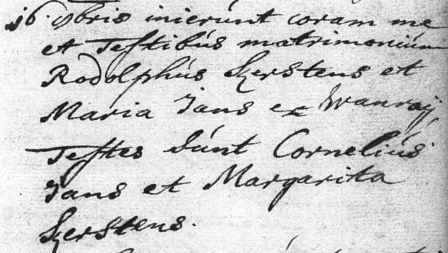 16 9bris inierunt coram me
et Testibus matrimonium
Rodolphus Kerstens et
Maria Jans ex Wanraij
Testes sunt Cornelius
Jans et Margarita
Kerstens.